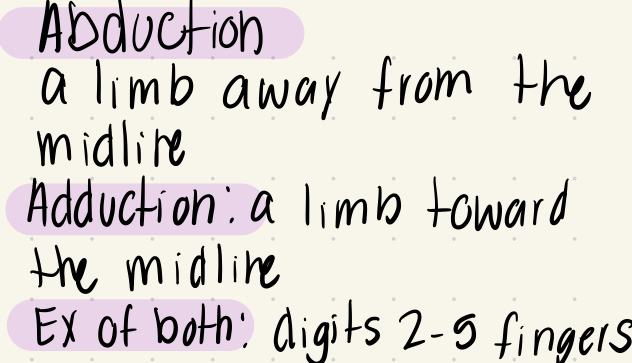 Abduction
a limb away from the
midline
Adduction: a limb toward
the midline
Ex of both: digits 2-5 fingers